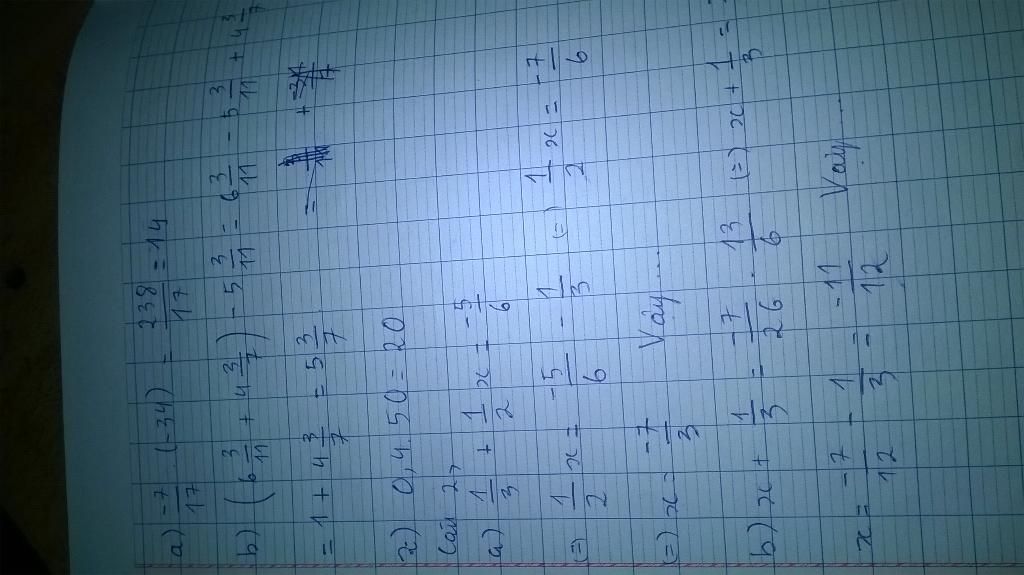 a) -7/17 . (-34) = 238/17 = 14
b) (6 3/11 + 4 3/7) - 5 3/11 = 6 3/11 - 5 3/11 + 4 3/7
= 1 + 4 3/7 = 5 3/7
0,4 . 50 = 20
Câu 2,
a) 1/3 + 1/2 x = -5/6
(=) 1/2 x = -5/6 - 1/3 (=) 1/2 x = -7/6
(=) x = -7/3 Vậy...
b) x + 1/3 = -7/26 . 13/6 (=) x + 1/3 =
x = -7/12 - 1/3 = -11/12 Vậy...